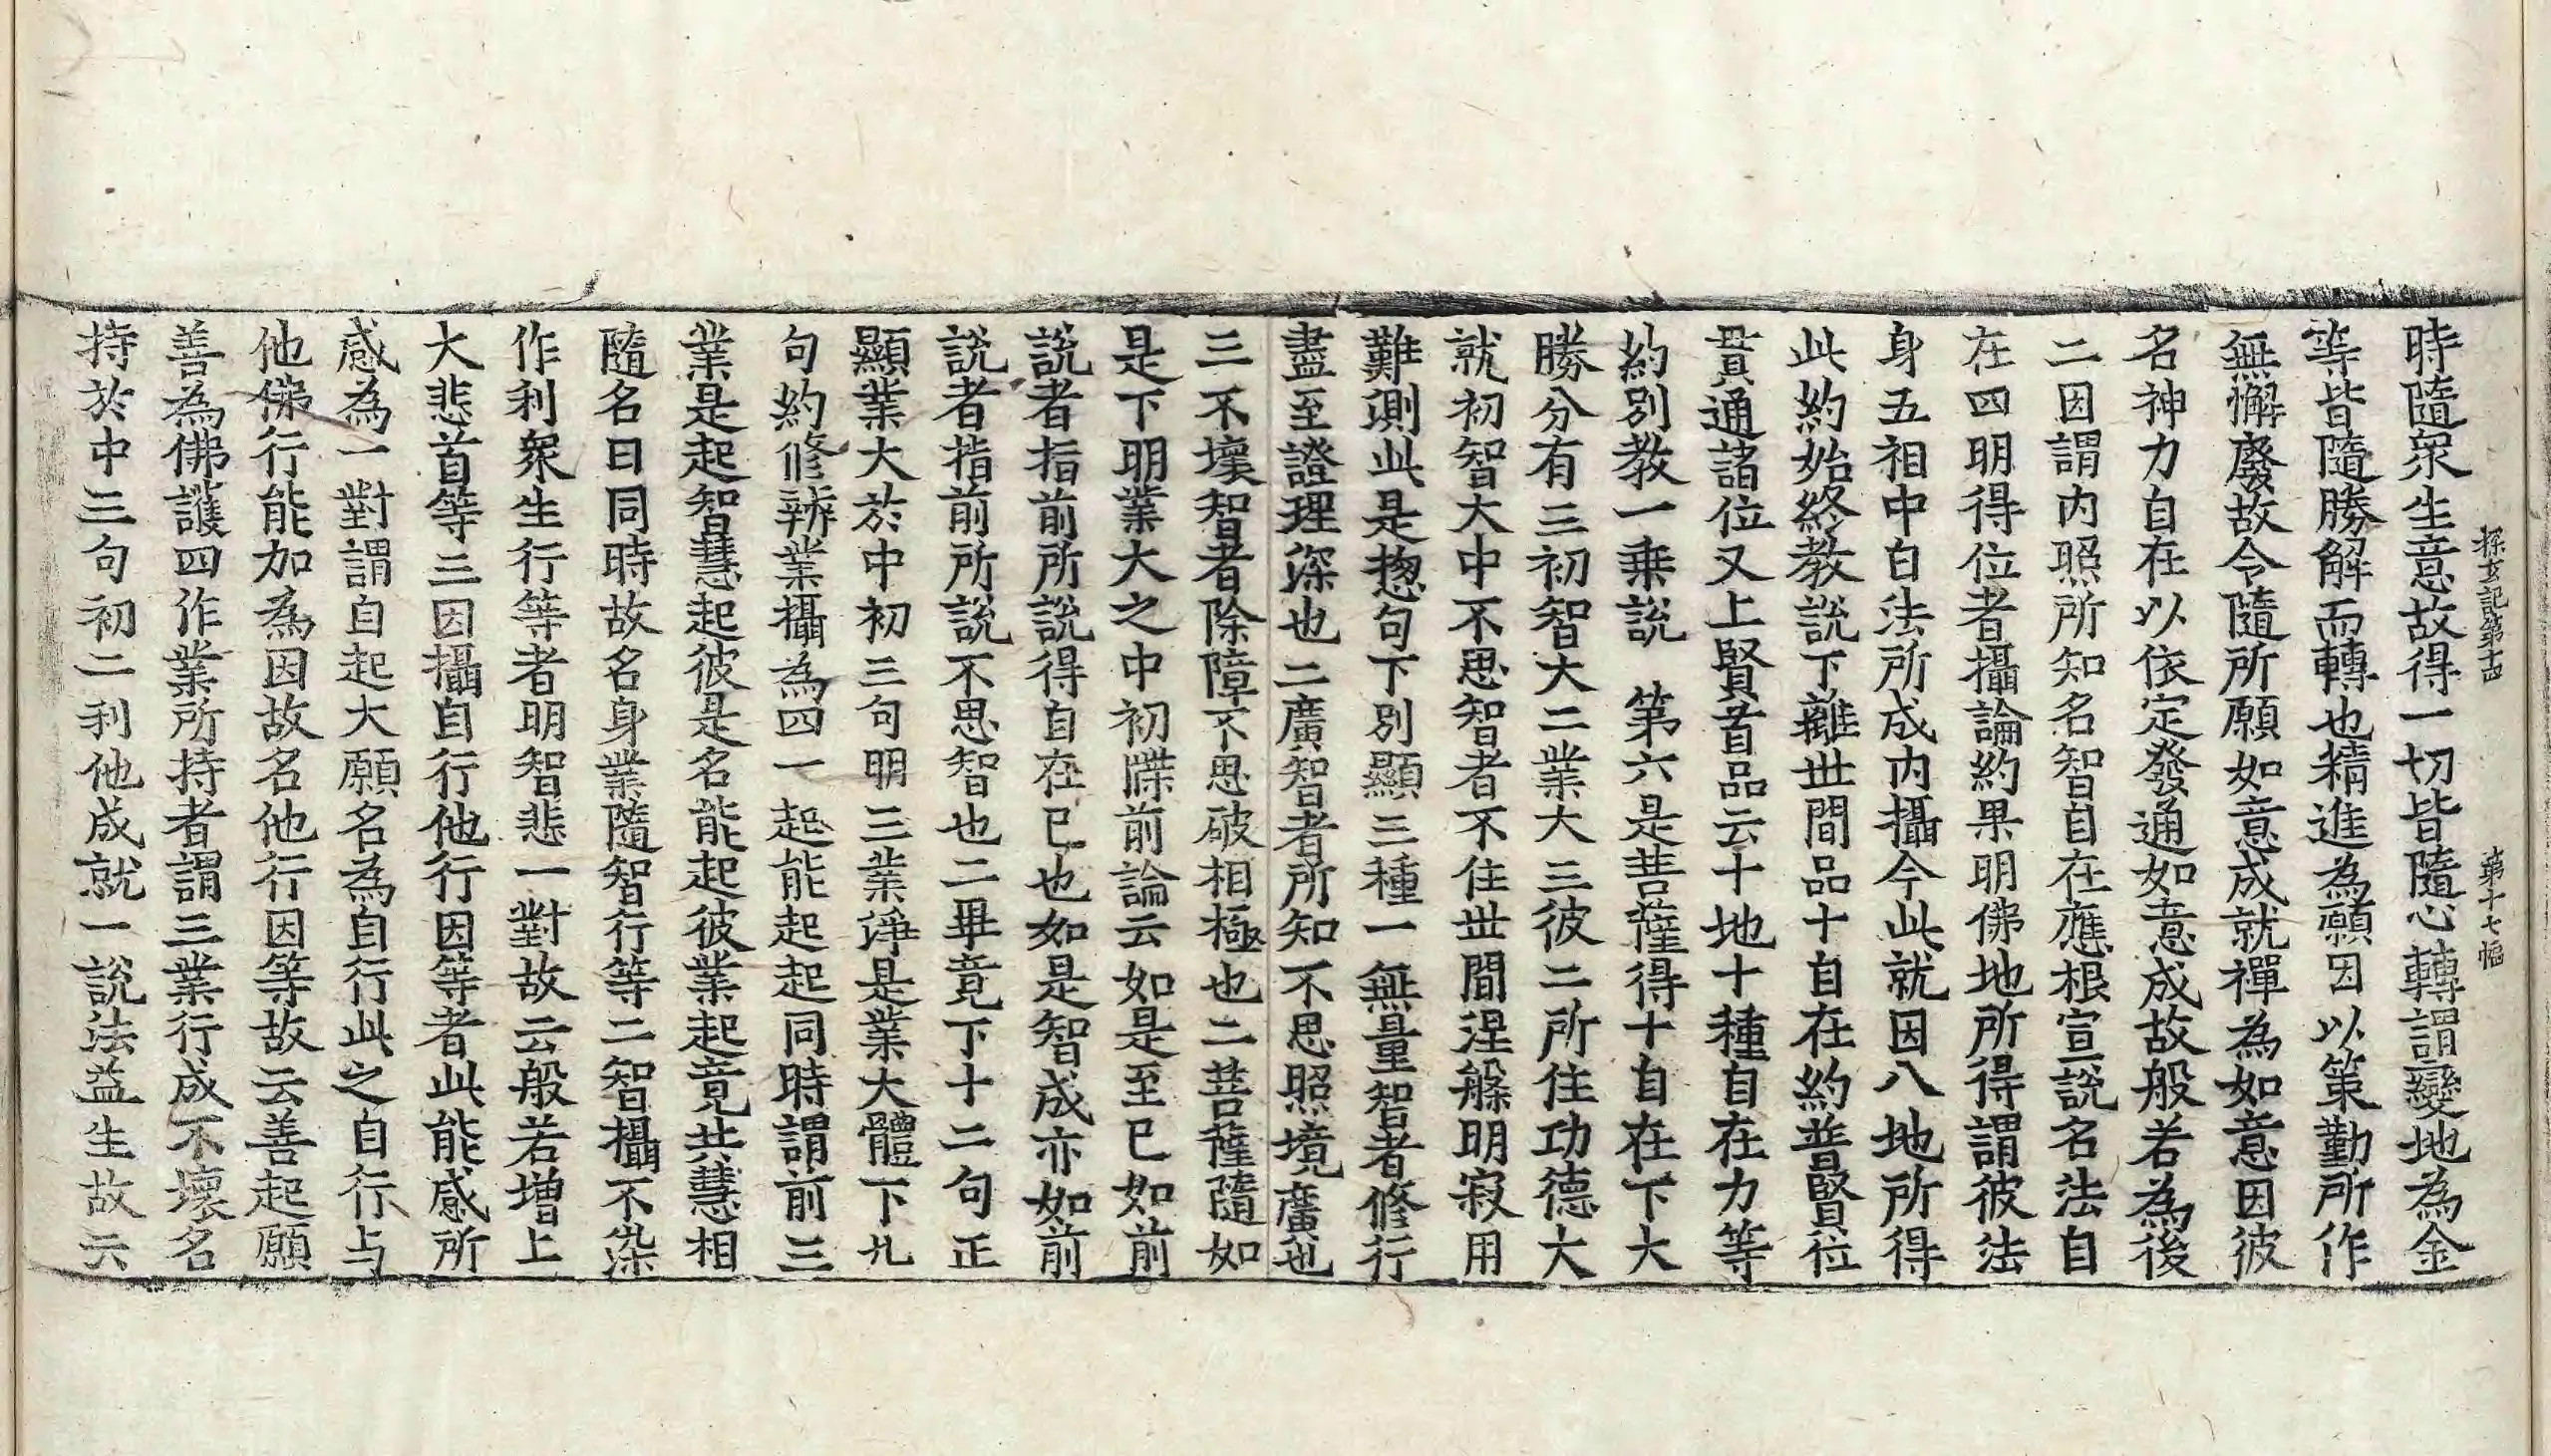 探玄記第十四 第十七幅
時隨衆生意故得一切皆隨心轉謂變地為金
等皆隨勝解而轉也精進為願因以策勤所作
無懈廢故令隨所願如意成就禪為如意因彼
名神力自在以依定發通如意成故般若為後
二因謂内照所知名智自在應根宣說名法自
在四明得位者攝論約果明佛地所得謂彼法
身五相中白法所成内攝今此就因八地所得
此約始終教說下離世間品十自在約普賢位
貫通諸位又上賢首品云十地十種自在力等
約別教一乘說 第六是菩薩得十自在下大
勝分有三初智大二業大三彼二所住功德大
就初智大中不思智者不住世間涅槃明寂用
難測此是揔句下別顯三種一無量智者修行
盡至證理深也二廣智者所知不思照境廣也
三不壞智者除障不思破相極也二菩薩隨如
是下明業大之中初牒前論云如是至已如前
說者指前所說得自在已也如是智成亦如前
說者指前所說不思智也二畢竟下十二句正
顯業大於中初三句明三業淨是業大體下九
句約修辨業攝為四一起能起起同時謂前三
業是起智慧起彼是名能起彼業起竟共慧相
隨名曰同時故名身業隨智行等二智攝不染
作利衆生行等者明智悲一對故云般若增上
大悲首等三因攝自行他行因等者此能感所
感為一對謂自起大願名為自行此之自行与
他佛行能加為因故名他行因等故云善起願
善為佛護四作業所持者謂三業行成不壞名
持於中三句初二利他成就一說法益生故云